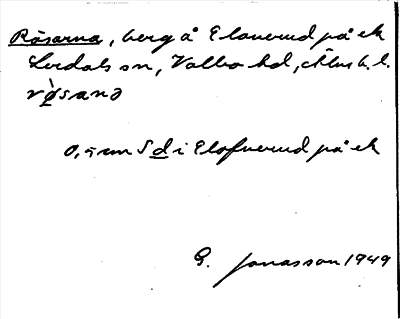 Råsarna, berg å Eloverud på ek
Lerdals sn, Valbo hd, Älvs b. l.
rø̀sanə
0,5 km S d i Elofverud på ek
G. Jonasson 1949